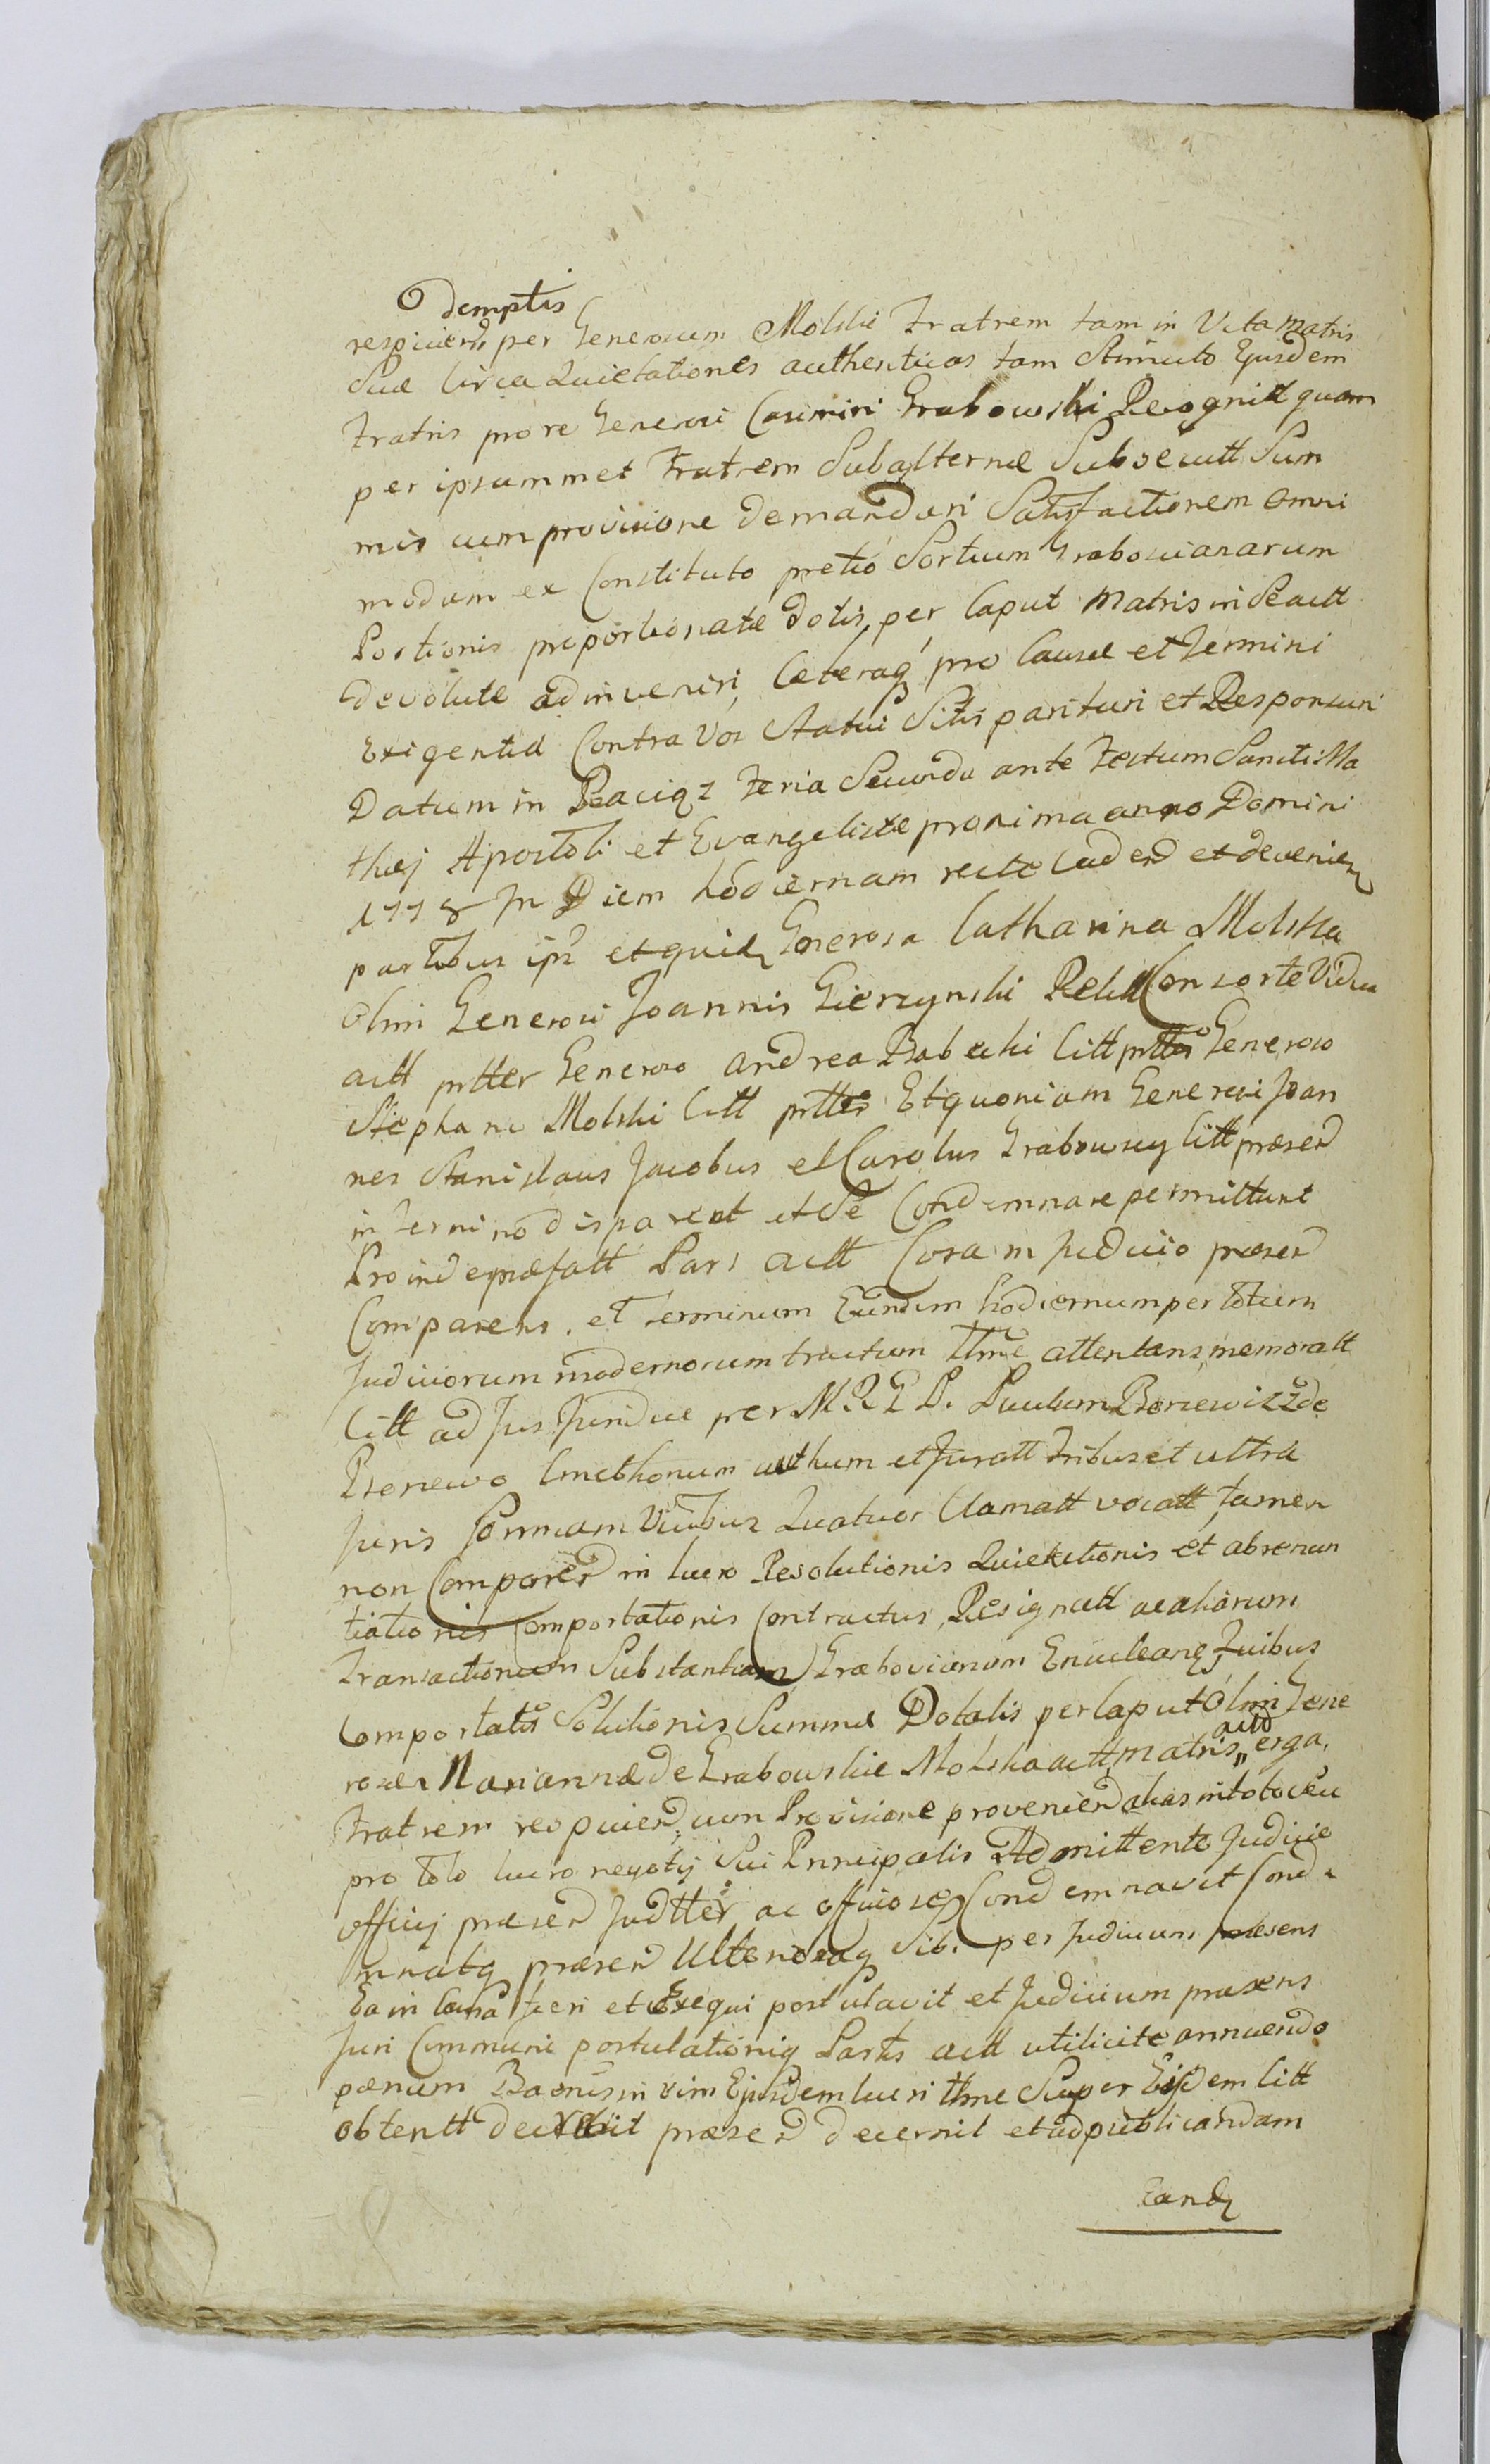 demptis
respiciend per Generosum Molski Fratrem tam in Vita Matris
Suæ circa Quietationes authenticas tam Simulo Ejusdem
Fratris pro re Generosi Casimiri Grabowski Recognit quam
per ipsummet Fratrem Subalternæ Subsecutt Sum
mis cum provisione demandari Satisfactionem omni
modam ex Constituto pretió Sortium Grabovianarum
Portionis proportionatæ dotis per Caput Matris in Se actt
devolutæ adinveniri, Ceteraq pro Causæ et Termini
Exigentia Contra Vos Statui Sitis parituri et Responsuri
Datum in Raciąz Feria Secunda ante Festum Sancti Ma
thæj Apostoli et Evangelistæ proxima anno Domini
1778 In Diem hodiernam recte cadend et devenien
partibus ips et quid Generosa Catharina Molska
olim Generosi Joannis Gierzynski Relict Consorte Vidua
actt prtter Generoso Andrea Babecki Citt prtter Generoso
Stephano Molski Citt prtter Et quoniam Generosi Joan
nes Stanislaus Jacobus et Carolus Grabowscy Citt præsend
in Termino disparent et Se Condemnare permittunt
Proinde præfatt Pars actt Coram Judicio præsend
Comparens et Terminum Eundem hodiernum per totum
Judiciorum modernorum tractum Ttme attentans memoratt
Citt ad Jus Juridice per M. R. G. P. Paulum
Cmethonum authum et Juratt Tribus et ultra
Juris formam Vicibus Quatuor Clamatt vocatt, tamen
non Comparend in lucro Resolutionis Quietationis et abrenun
tiationis Comportationis Contractus, Resignatt ac aliarum
Transactionum Substantiam Grabovianam Enucleanq Quibus
Comportatis Solutionis Summæ Dotalis per Caput Olim Gene
rosæ Mariannæ de Grabowskie Molska actt, Matris actt erga
Fratrem respiciend, cum Provisione proveniend alias in toto ceu
pro toto lucro negotij Sui Principalis Admittente Judicio
Officij præsend Judtter ac officioseq Condemnavit Conde
mnatq præsend Ulterioraq Sibi per Judicium præsens
Ea in Causa fieri et Exequi postulavit et Judicium præsens
Juri Communi postulationiq Partis actt utilicite annuendo
pænam Banis in vim Ejusdem lucri Ttme Super Eisdem Citt
obtentt præsend decernit et ad publicandam
Eand